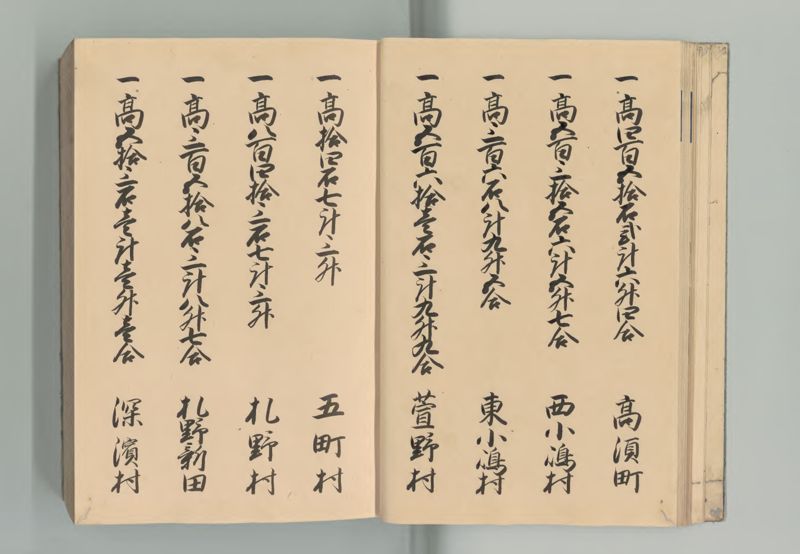 一高四百五拾石弐斗六升四合 高須町
一高五百三拾五石六斗五升七合 西小嶋村
一高三百六石八斗九升五合 東小嶋村
一高五百六拾壱石三斗九升九合 萱野村
一高拾四石七斗三升 五町村
一高八百四拾三石七斗三升 札野村
一高三百五拾八石三斗八升七合 札野新田
一高五拾三石壱斗壱升壱合 深濱村